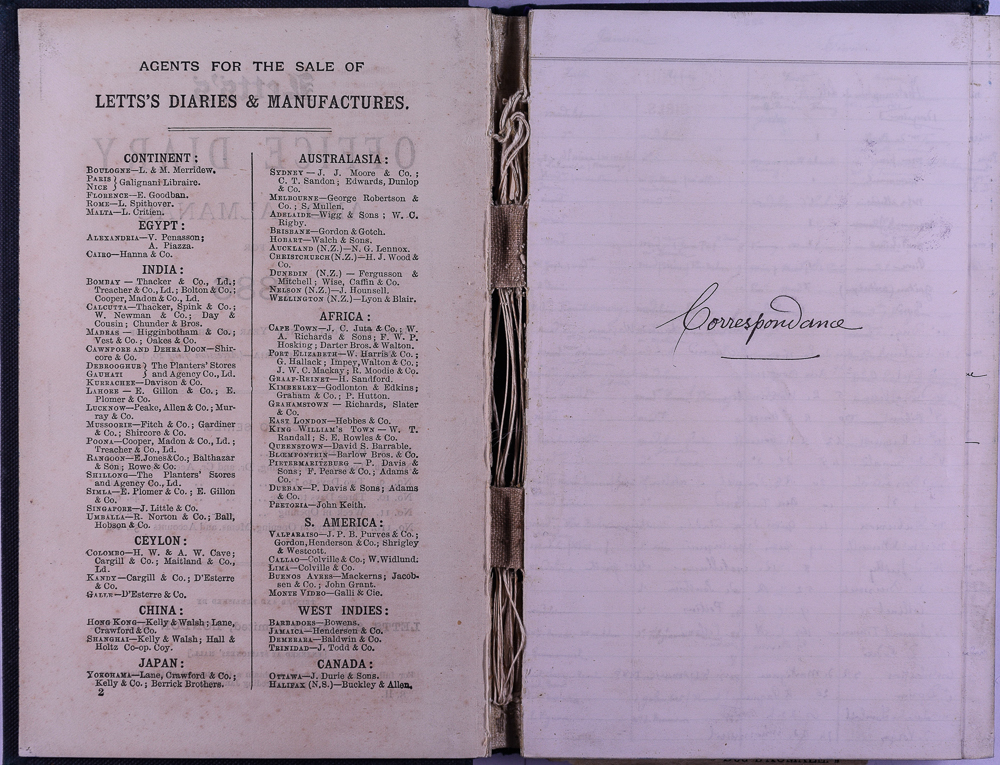 AGENTS FOR THE SALE OF
LETTS'S DIARIES & MANUFACTURES.
CONTINENT:
BOULOGNE—L. & M. Merridew.
PARIS } Galignani Libraire.
NICE
FLORENCE—E. Goodban.
ROME—L. Spithover.
MALTA—L. Critien.
EGYPT:
ALEXANDRIA—V. Penasson;
A. Piazza.
CAIRO—Hanna & Co.
INDIA:
BOMBAY — Thacker & Co., Ld.;
Treacher & Co., Ld.; Bolton & Co.;
Cooper, Madon & Co., Ld.
CALCUTTA—Thacker, Spink & Co.;
W. Newman & Co.; Day &
Cousin; Chunder & Bros.
MADRAS — Higginbotham & Co.;
Vest & Co.; Oakes & Co.
CAWNPORE AND DEHRA DOON—Shir-
core & Co.
DEBROOGHUR } The Planters' Stores
GAUHATI } and Agency Co., Ld.
KURRACHEE—Davison & Co.
LAHORE — E. Gillon & Co.; E.
Plomer & Co.
LUCKNOW—Peake, Allen & Co.; Mur-
ray & Co.
MUSSOORIE—Fitch & Co.; Gardiner
& Co.; Shircore & Co.
POONA—Cooper, Madon & Co., Ld.;
Treacher & Co., Ld.
RANGOON—E. Jones & Co.; Balthazar
& Son; Rowe & Co.
SHILLONG—The Planters' Stores
and Agency Co., Ld.
SIMLA—E. Plomer & Co.; E. Gillon
& Co.
SINGAPORE—J. Little & Co.
UMBALLA—R. Norton & Co.; Ball,
Hobson & Co.
CEYLON:
COLOMBO—H. W. & A. W. Cave;
Cargill & Co.; Maitland & Co.,
Ld.
KANDY—Cargill & Co.; D'Esterre
& Co.
GALLE—D'Esterre & Co.
CHINA:
HONG KONG—Kelly & Walsh; Lane,
Crawford & Co.
SHANGHAI—Kelly & Walsh; Hall &
Holtz Co-op. Coy.
JAPAN:
YOKOHAMA—Lane, Crawford & Co.;
Kelly & Co.; Berrick Brothers.
2
AUSTRALASIA:
SYDNEY — J. J. Moore & Co.;
C. T. Sandon; Edwards, Dunlop
& Co.
MELBOURNE—George Robertson &
Co.; S. Mullen.
ADELAIDE—Wigg & Sons; W. C.
Rigby.
BRISBANE—Gordon & Gotch.
HOBART—Walch & Sons.
AUCKLAND (N.Z.)—N. G. Lennox.
CHRISTCHURCH (N.Z.)—H. J. Wood &
Co.
DUNEDIN (N.Z.) — Fergusson &
Mitchell; Wise, Caffin & Co.
NELSON (N.Z.)—J. Hounsell.
WELLINGTON (N.Z.)—Lyon & Blair.
AFRICA:
CAPE TOWN—J. C. Juta & Co.; W.
A. Richards & Sons; F. W. P.
Hosking; Darter Bros. & Walton.
PORT ELIZABETH—W. Harris & Co.;
G. Hallack; Impey, Walton & Co.;
J. W. C. Mackay; R. Moodie & Co.
GRAAF-REINET—H. Sandford.
KIMBERLEY—Godlonton & Edkins;
Graham & Co.; P. Hutton.
GRAHAMSTOWN — Richards, Slater
& Co.
EAST LONDON—Hebbes & Co.
KING WILLIAM'S TOWN — W. T.
Randall; S. E. Rowles & Co.
QUEENSTOWN—David S. Barrable.
BLŒMFONTEIN—Barlow Bros. & Co.
PIETERMARITZBURG — P. Davis &
Sons; F. Pearse & Co.; Adams &
Co.
DURBAN—P. Davis & Sons; Adams
& Co.
PRETORIA—John Keith.
S. AMERICA:
VALPARAISO—J. P. B. Purves & Co.;
Gordon, Henderson & Co.; Shrigley
& Westcott.
CALLAO—Colville & Co.; W. Widlund.
LIMA—Colville & Co.
BUENOS AYRES—Mackerns; Jacob-
sen & Co.; John Grant.
MONTE VIDEO—Galli & Cie.
WEST INDIES:
BARBADOES—Bowens.
JAMAICA—Henderson & Co.
DEMERARA—Baldwin & Co.
TRINIDAD—J. Todd & Co.
CANADA:
OTTAWA—J. Durie & Sons.
HALIFAX (N.S.)—Buckley & Allen.
Correspondance